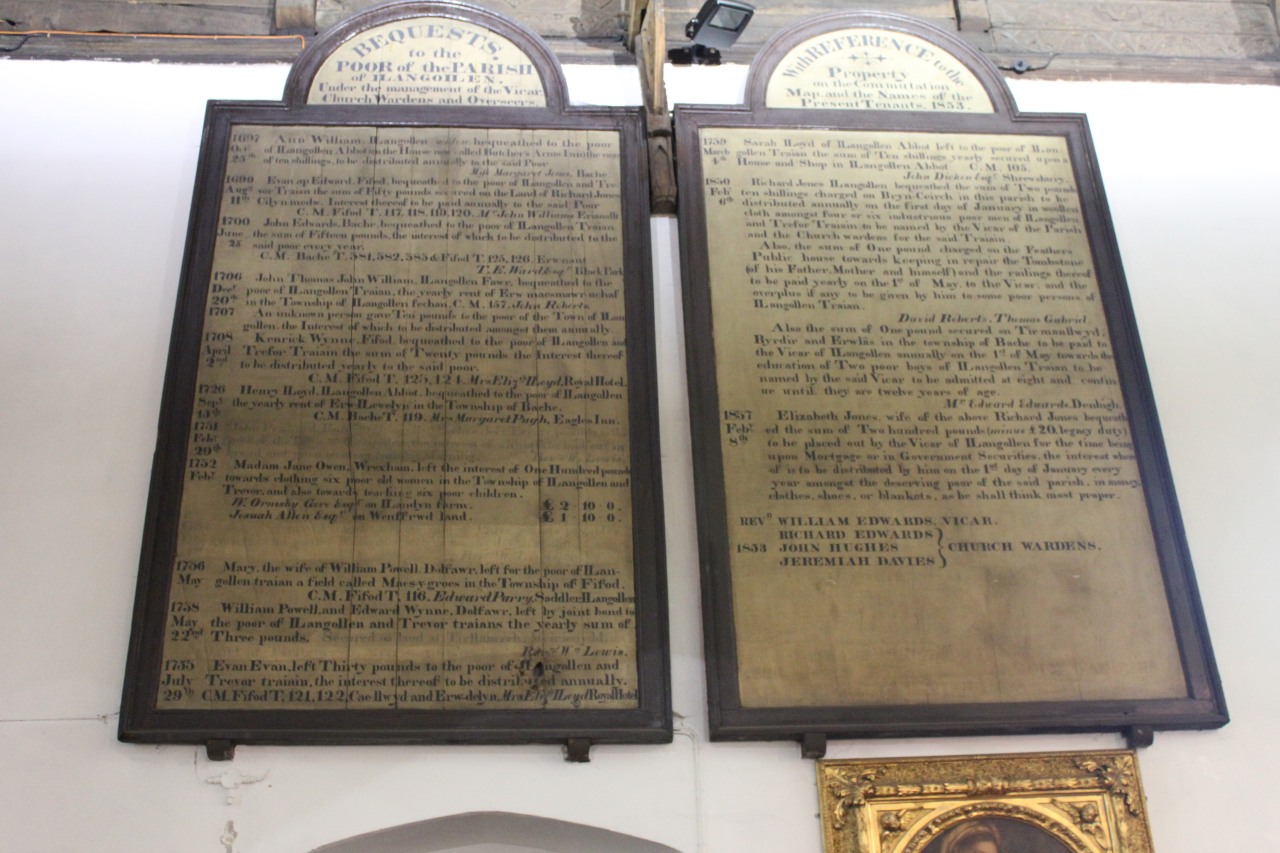 BEQUESTS,
to the
POOR of the PARISH
of LLANGOLLEN.
Under the management of the Vicar,
Church Wardens and Overseers.
1697 Ann William, Llangollen bequeathed to the poor
Octr of Llangollen Abbot on the House now called Butchers Arms Inn the sum
25th of ten shillings, to be distributed annually to the said Poor
Miss Margaret Jones, Bache
1699 Evan ap Edward, Fifod, bequeathed to the poor of Llangollen and Tre-
Augst vor Traian the sum of Fifty pounds secured on the Land of Richard Jones
11th Cilynnedw. Interest thereof to be paid annually to the said Poor
C.M. Fifod T. 117, 118, 119, 120. Mr John Williams Erianallt
1700 John Edwards, Bache, bequeathed to the poor of Llangollen Traian
June the sum of Fifteen pounds, the interest of which to be distributed to the
25 said poor every year.
C.M. Bache T. 581, 582, 585 & Fifod T. 125, 126. Erwnant
T. E. Ward Esqr Black Park
1706 John Thomas John William, Llangollen Fawr, bequeathed to the
Decr poor of Llangollen Traian, the yearly rent of Erw maesmawr uchaf
20th in the Township of Llangollen fechan, C.M. 157. John Roberts.
1707 An unknown person gave Ten pounds to the poor of the Town of Llan
gollen, the Interest of which to be distributed amongst them annually.
1708 Kenrick Wynne, Fifod, bequeathed to the poor of Llangollen and
April Trefor Traiain the sum of Twenty pounds the Interest thereof
2nd to be distributed yearly to the said poor.
C.M. Fifod T. 123, 124. Mrs Elizth Lloyd, Royal Hotel.
1726 Henry Lloyd, Llangollen Abbot, bequeathed to the poor of Llangollen
Sepr the yearly rent of Erw Llewelyn in the Township of Bache.
15th C.M. Bache T. 119. Mrs Margaret Pugh, Eagles Inn.
1751
Febr
29th
1752 Madam Jane Owen, Wrexham, left the interest of One Hundred pounds
Febr towards clothing six poor old women in the Township of Llangollen and
Trevor, and also towards teaching six poor children.
W. Ormsby Gore Esqr on Llandyn farm. £ 2 10 0.
Josuah Allen Esqr on Wenffrwd land. £ 1 10 0.
1756 Mary, the wife of William Powell, Dolfawr, left for the poor of Llan-
May gollen traian a field called Maes-y-groes in the Township of Fifod.
C.M. Fifod T. 116. Edward Parry, Saddler, Llangollen
1758 William Powell, and Edward Wynne, Dolfawr, left by joint bond to
May the poor of Llangollen and Trevor traians the yearly sum of
22nd Three pounds.
Revd Wm Lewis.
1735 Evan Evan, left Thirty pounds to the poor of Llangollen and
July Trevor traiain, the interest thereof to be distributed annually.
29th C.M. Fifod T. 121, 122, Cae-llwyd and Erw-delyn. Mrs Elizth Lloyd Royal Hotel
With REFERENCE to the
Property
on the Commutation
Map, and the Names of the
Present Tenants, 1853.
1759 Sarah Lloyd of Llangollen Abbot left to the poor of Llan-
March gollen Traian the sum of Ten shillings yearly secured upon a
4th House and Shop in Llangollen Abbot C.M. 105.
John Dicken Esqr Shrewsbury.
1850 Richard Jones Llangollen bequeathed the sum of Two pounds
Febr ten shillings charged on Bryn-Ceirch in this parish to be
6th distributed annually on the first day of January in woollen
cloth amongst four or six industrious poor men of Llangollen
and Trefor Traian to be named by the Vicar of the Parish
and the Church wardens for the said Traian.
Also, the sum of One pound charged on the Feathers
Public house towards keeping in repair the Tombstone
(of his Father, Mother and himself) and the railings thereof
to be paid yearly on the 1st of May, to the Vicar, and the
overplus if any to be given by him to some poor persons of
Llangollen Traian.
David Roberts, Thomas Gabriel.
Also the sum of One pound secured on Tirmanllwyd,
Byrdir and Erwlas in the township of Bache to be paid to
the Vicar of Llangollen annually on the 1st of May towards the
education of Two poor boys of Llangollen Traian to be
named by the said Vicar to be admitted at eight and contin
ue until they are twelve years of age.
Mr Edward Edwards, Denbigh.
1857 Elizabeth Jones, wife of the above Richard Jones bequeath
Febr ed the sum of Two hundred pounds (minus £20, legacy duty)
8th to be placed out by the Vicar of Llangollen for the time being
upon Mortgage or in Government Securities, the interest where
of is to be distributed by him on the 1st day of January every
year amongst the deserving poor of the said parish, in money,
clothes, shoes, or blankets, as he shall think most proper.
REVD WILLIAM EDWARDS, VICAR.
RICHARD EDWARDS
1853 JOHN HUGHES CHURCH WARDENS.
JEREMIAH DAVIES